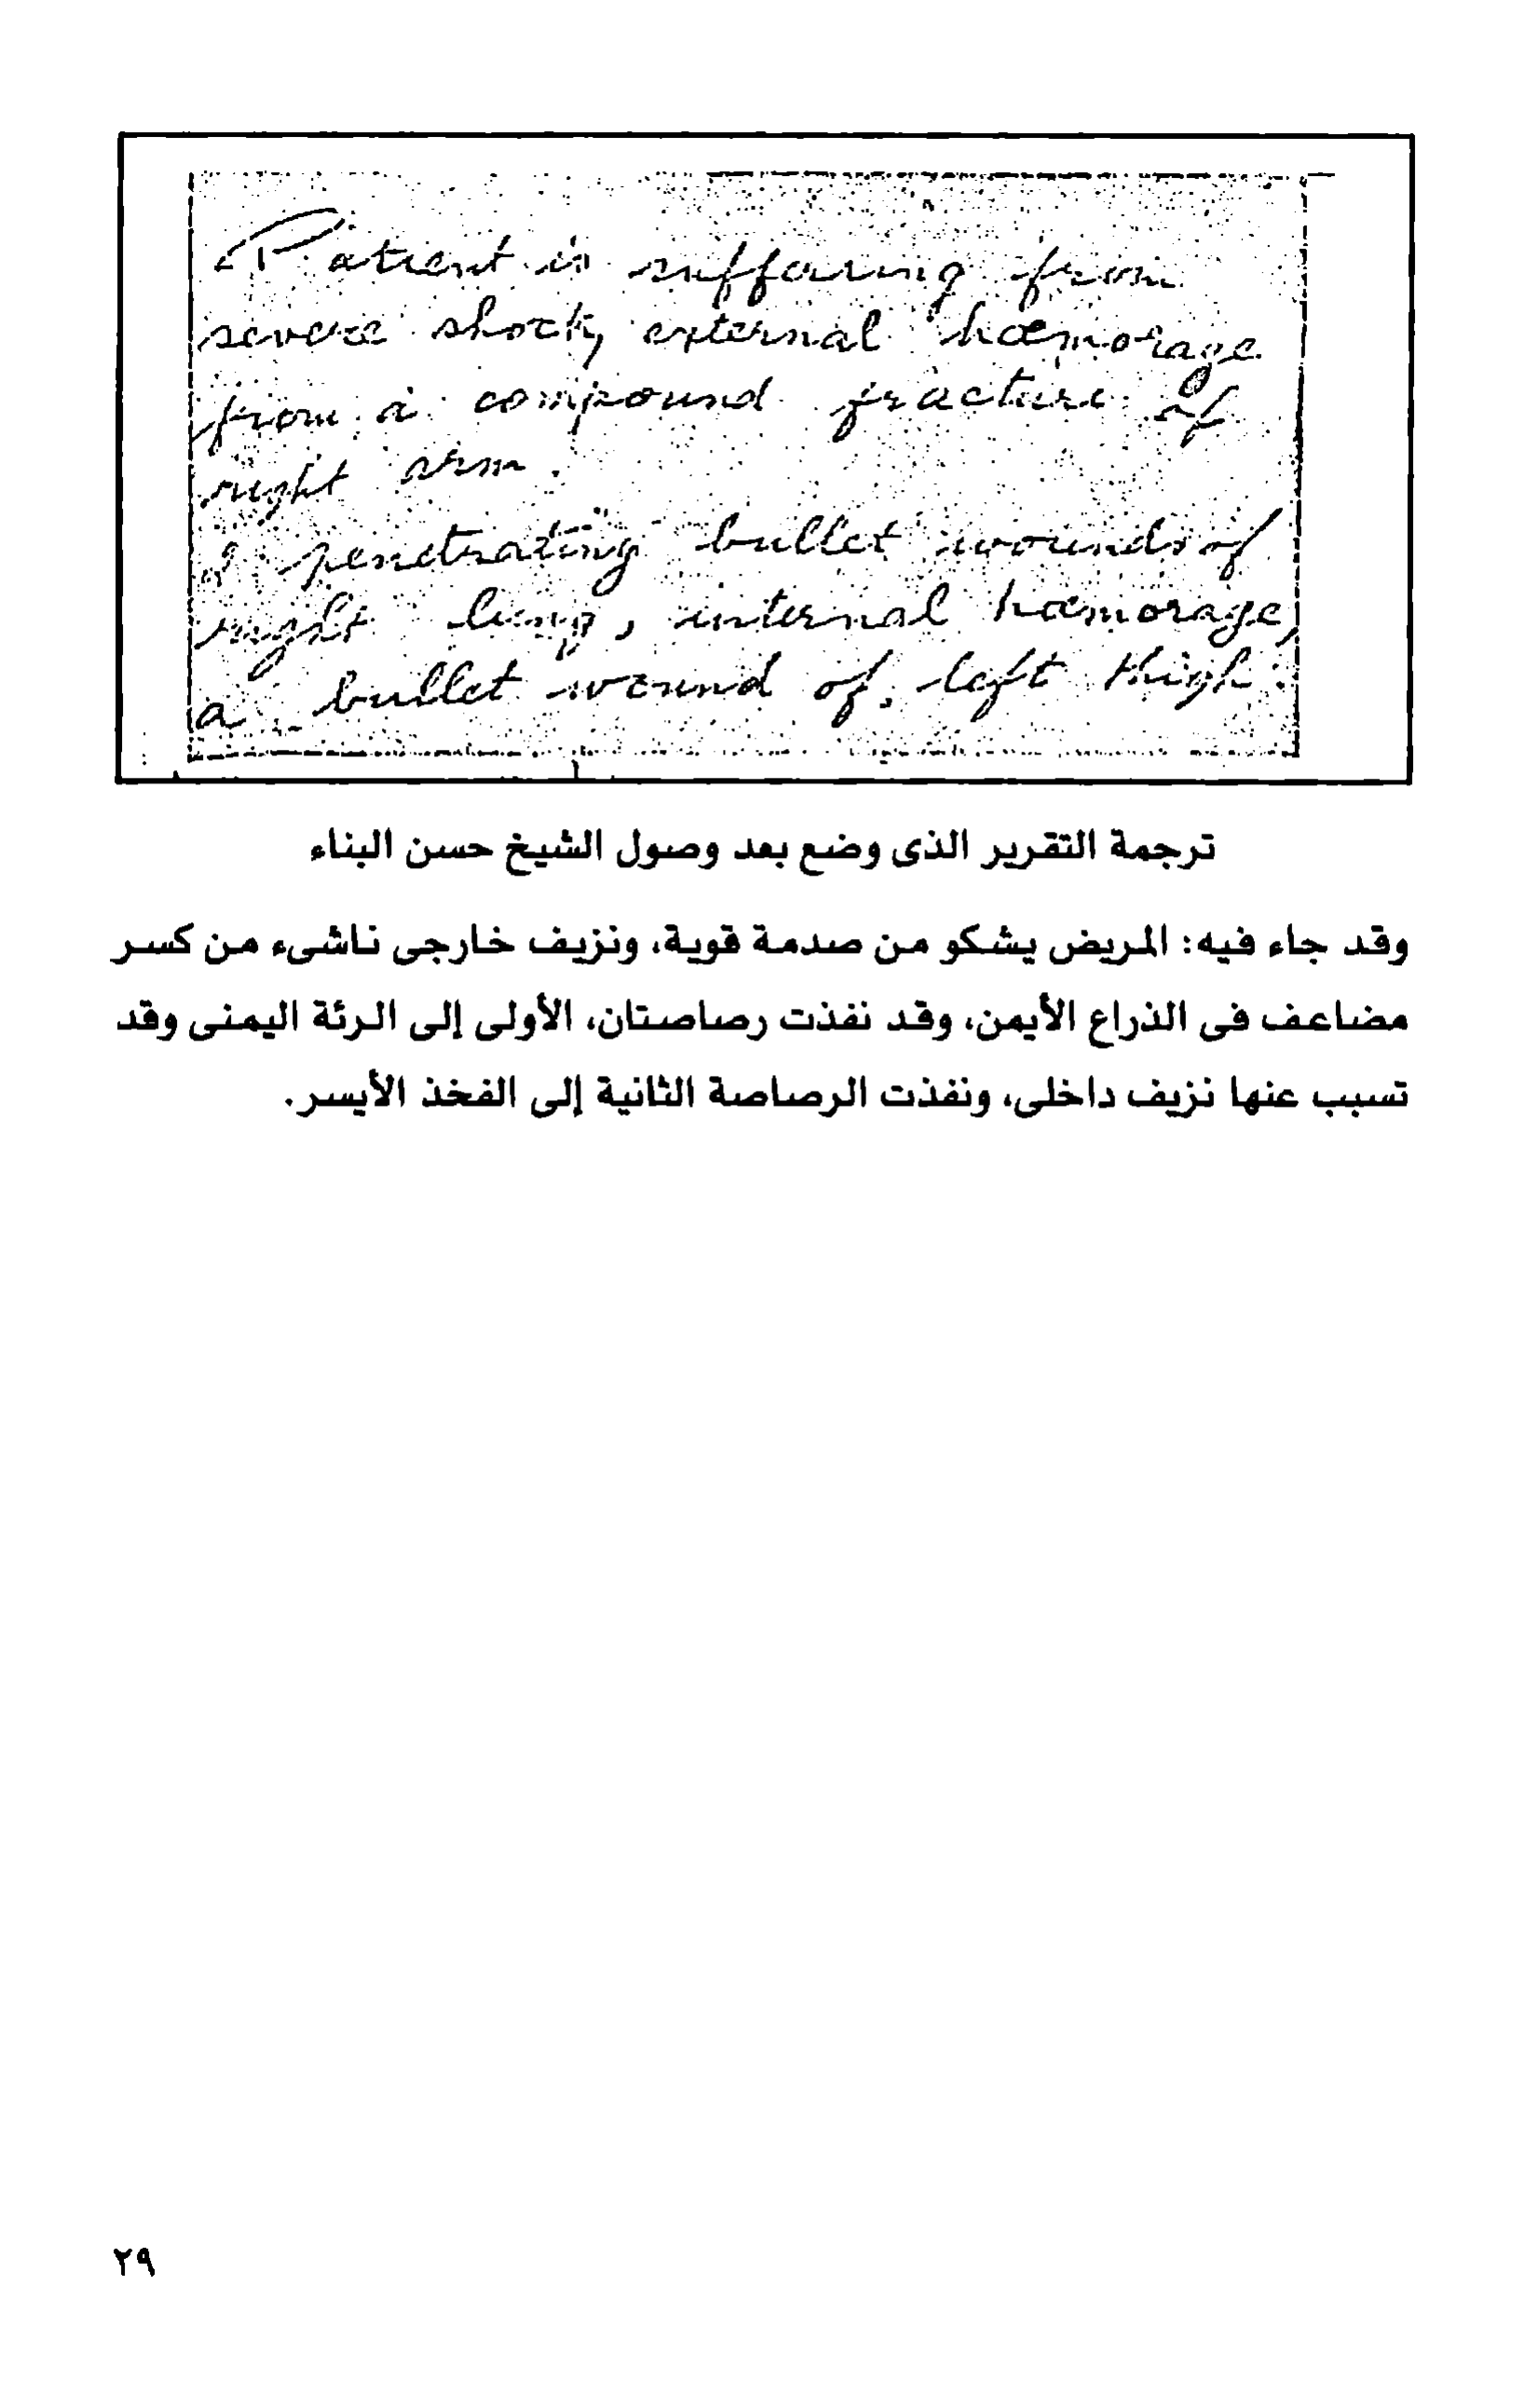 Patient is suffering from
severe shock, external hœmorage
from a compound fracture of
right arm.
penetrating bullet wounds of
right lung, internal hœmorage,
a bullet wound of left thigh.
ترجمة التقرير الذى وضع بعد وصول الشيخ حسن البناء
وقد جاء فيه: المريض يشكو من صدمة قوية، ونزيف خارجى ناشىء من كسر
مضاعف فى الذراع الأيمن، وقد نفذت رصاصتان، الأولى إلى الرئة اليمنى وقد
تسبب عنها نزيف داخلى، ونفذت الرصاصة الثانية إلى الفخذ الأيسر.
٢٩